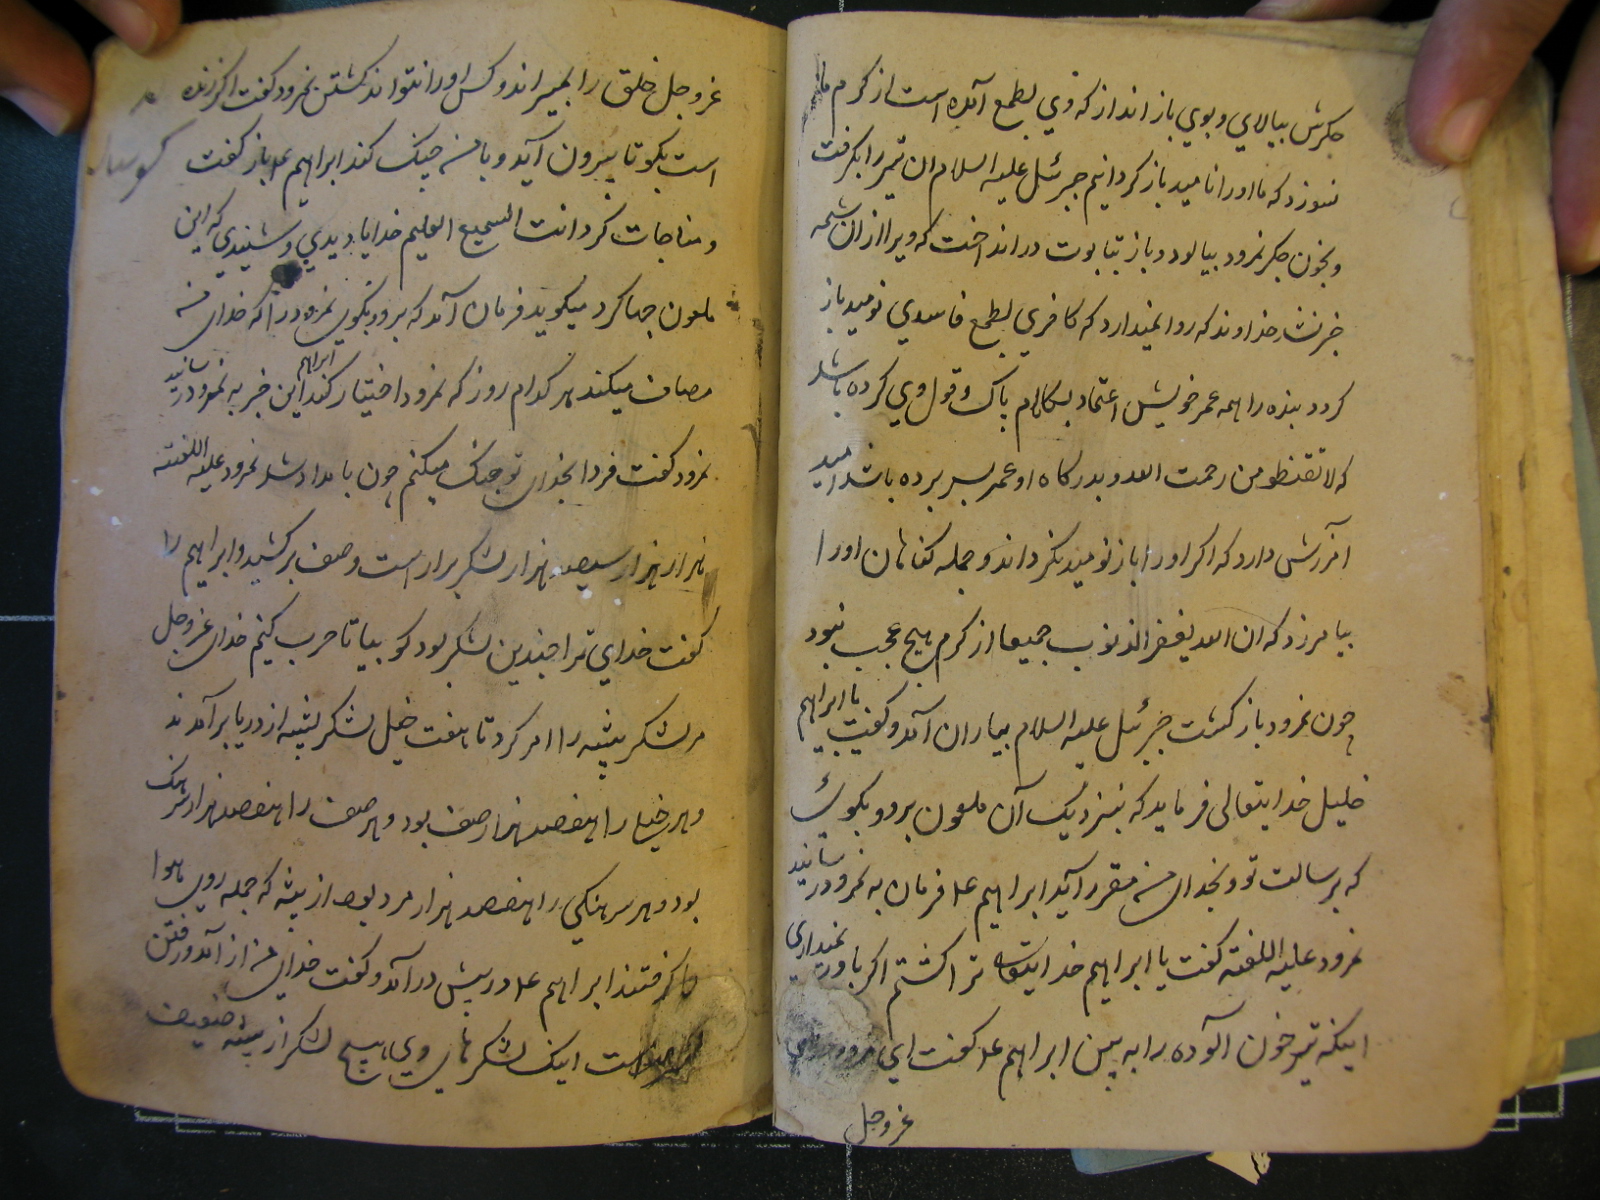 جکرش بیالای و بوی باز انداز که وی بطمع آمده است از کرم ما
نسوزد که ما اورا نا مید باز کردانیم جبرئیل علیه السلام ان تیر را بکرفت
و بخون جکر نمرود بیالود و باز بتابوت در انداخت که ویرا ازان شمه
خبر نشد خداوند که روا نمیدارد که کافری بطمع فاسدی نومید باز
کردد بنده را همه عمر خویش اعتماد بکلام پاک و قول وی کرده باشد
که لا تقنطو من رحمت الله و بدرکاه او عمر بسر برده باشد امید
آمرزش دارد که اکر اورا باز نومید نکرداند و جمله کناهان اورا
بیامرزد که ان الله یغفر الذنوب جمیعا از کرم هیچ عجب نبود
چون نمرود باز کشت جبرئیل علیه السلام بیاران آمد و کفت یا ابراهیم
خلیل خدایتعالی فرماید که بنزدیک آن ملعون برو و بکوی
که برسالت تو و بخدای من مقرر آید ابراهیم علا فرمان به نمرود رسانید
نمرود علیه اللغته کفت یا ابراهیم خدایتو ترا کشتم اکر باور نمیداری
اینکه تیر خون آلوده را به بین ابراهیم علا کفت ای نمرود
عز وجل
عز وجل خلق را بمیراند و کس اورا نتواند کشتن نمرود کفت اکر زنده
است بکو تا بیرون آید و با من جنک کند ابراهیم علا باز کفت
و مناجات کرد انت السمیع العلیم خدایا دیدی و شنیدی که این
ملعون چها کرد میکوید فرمان آمد که برو بکوی نمرود را که خدای من
مصاف میکند هر کدام روز که نمرود اختیار کند ابراهیم این خبر به نمرود رسانید
نمرود کفت فردا بخدای تو جنک میکنم چون بامداد شد نمرود علیه اللغته
هزار هزار سیصد هزار لشکر براراست و صف برکشید و ابراهیم را
کفت خدای ترا چندین لشکر بود کو بیا تا حرب کنیم خدای عز وجل
مر لشکر پشه را امر کرد تا هفت خیل لشکر پشه از دریا برآمدند
و هر خیل را هفصد هزار صف بود و هر صف را هفصد هزار سرهنک
بود و هر سرهنکی را هفصد هزار مرد بود از پشه که جمله روی هوا
کرفتند ابراهیم علا در پیش در آمد و کفت خدای من از آمد و رفتن
است اینک لشکرهای وی هیچ لشکر از پشه ضعیف